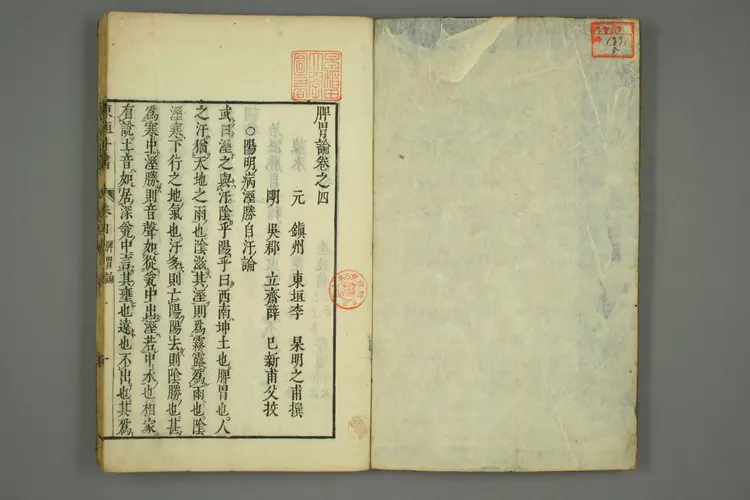 脾胃論卷之四
元 鎭州 東垣李 杲明之甫 撰
明 吳郡 立齋薛 己新甫父 挍
○陽明病溼勝自汗論
或曰溼之與汗陰乎陽乎曰西南坤土也脾胃也人
之汗猶天地之雨也陰滋其溼則爲霧露爲雨也陰
溼寒下行之地氣也汗多則亡陽陽去則陰勝也甚
爲寒中溼勝則音聲如從瓮中出溼若中水也相家
有說土音如居深瓮中言其壅也遠也不出也其爲
東垣十書 卷四 脾胃論